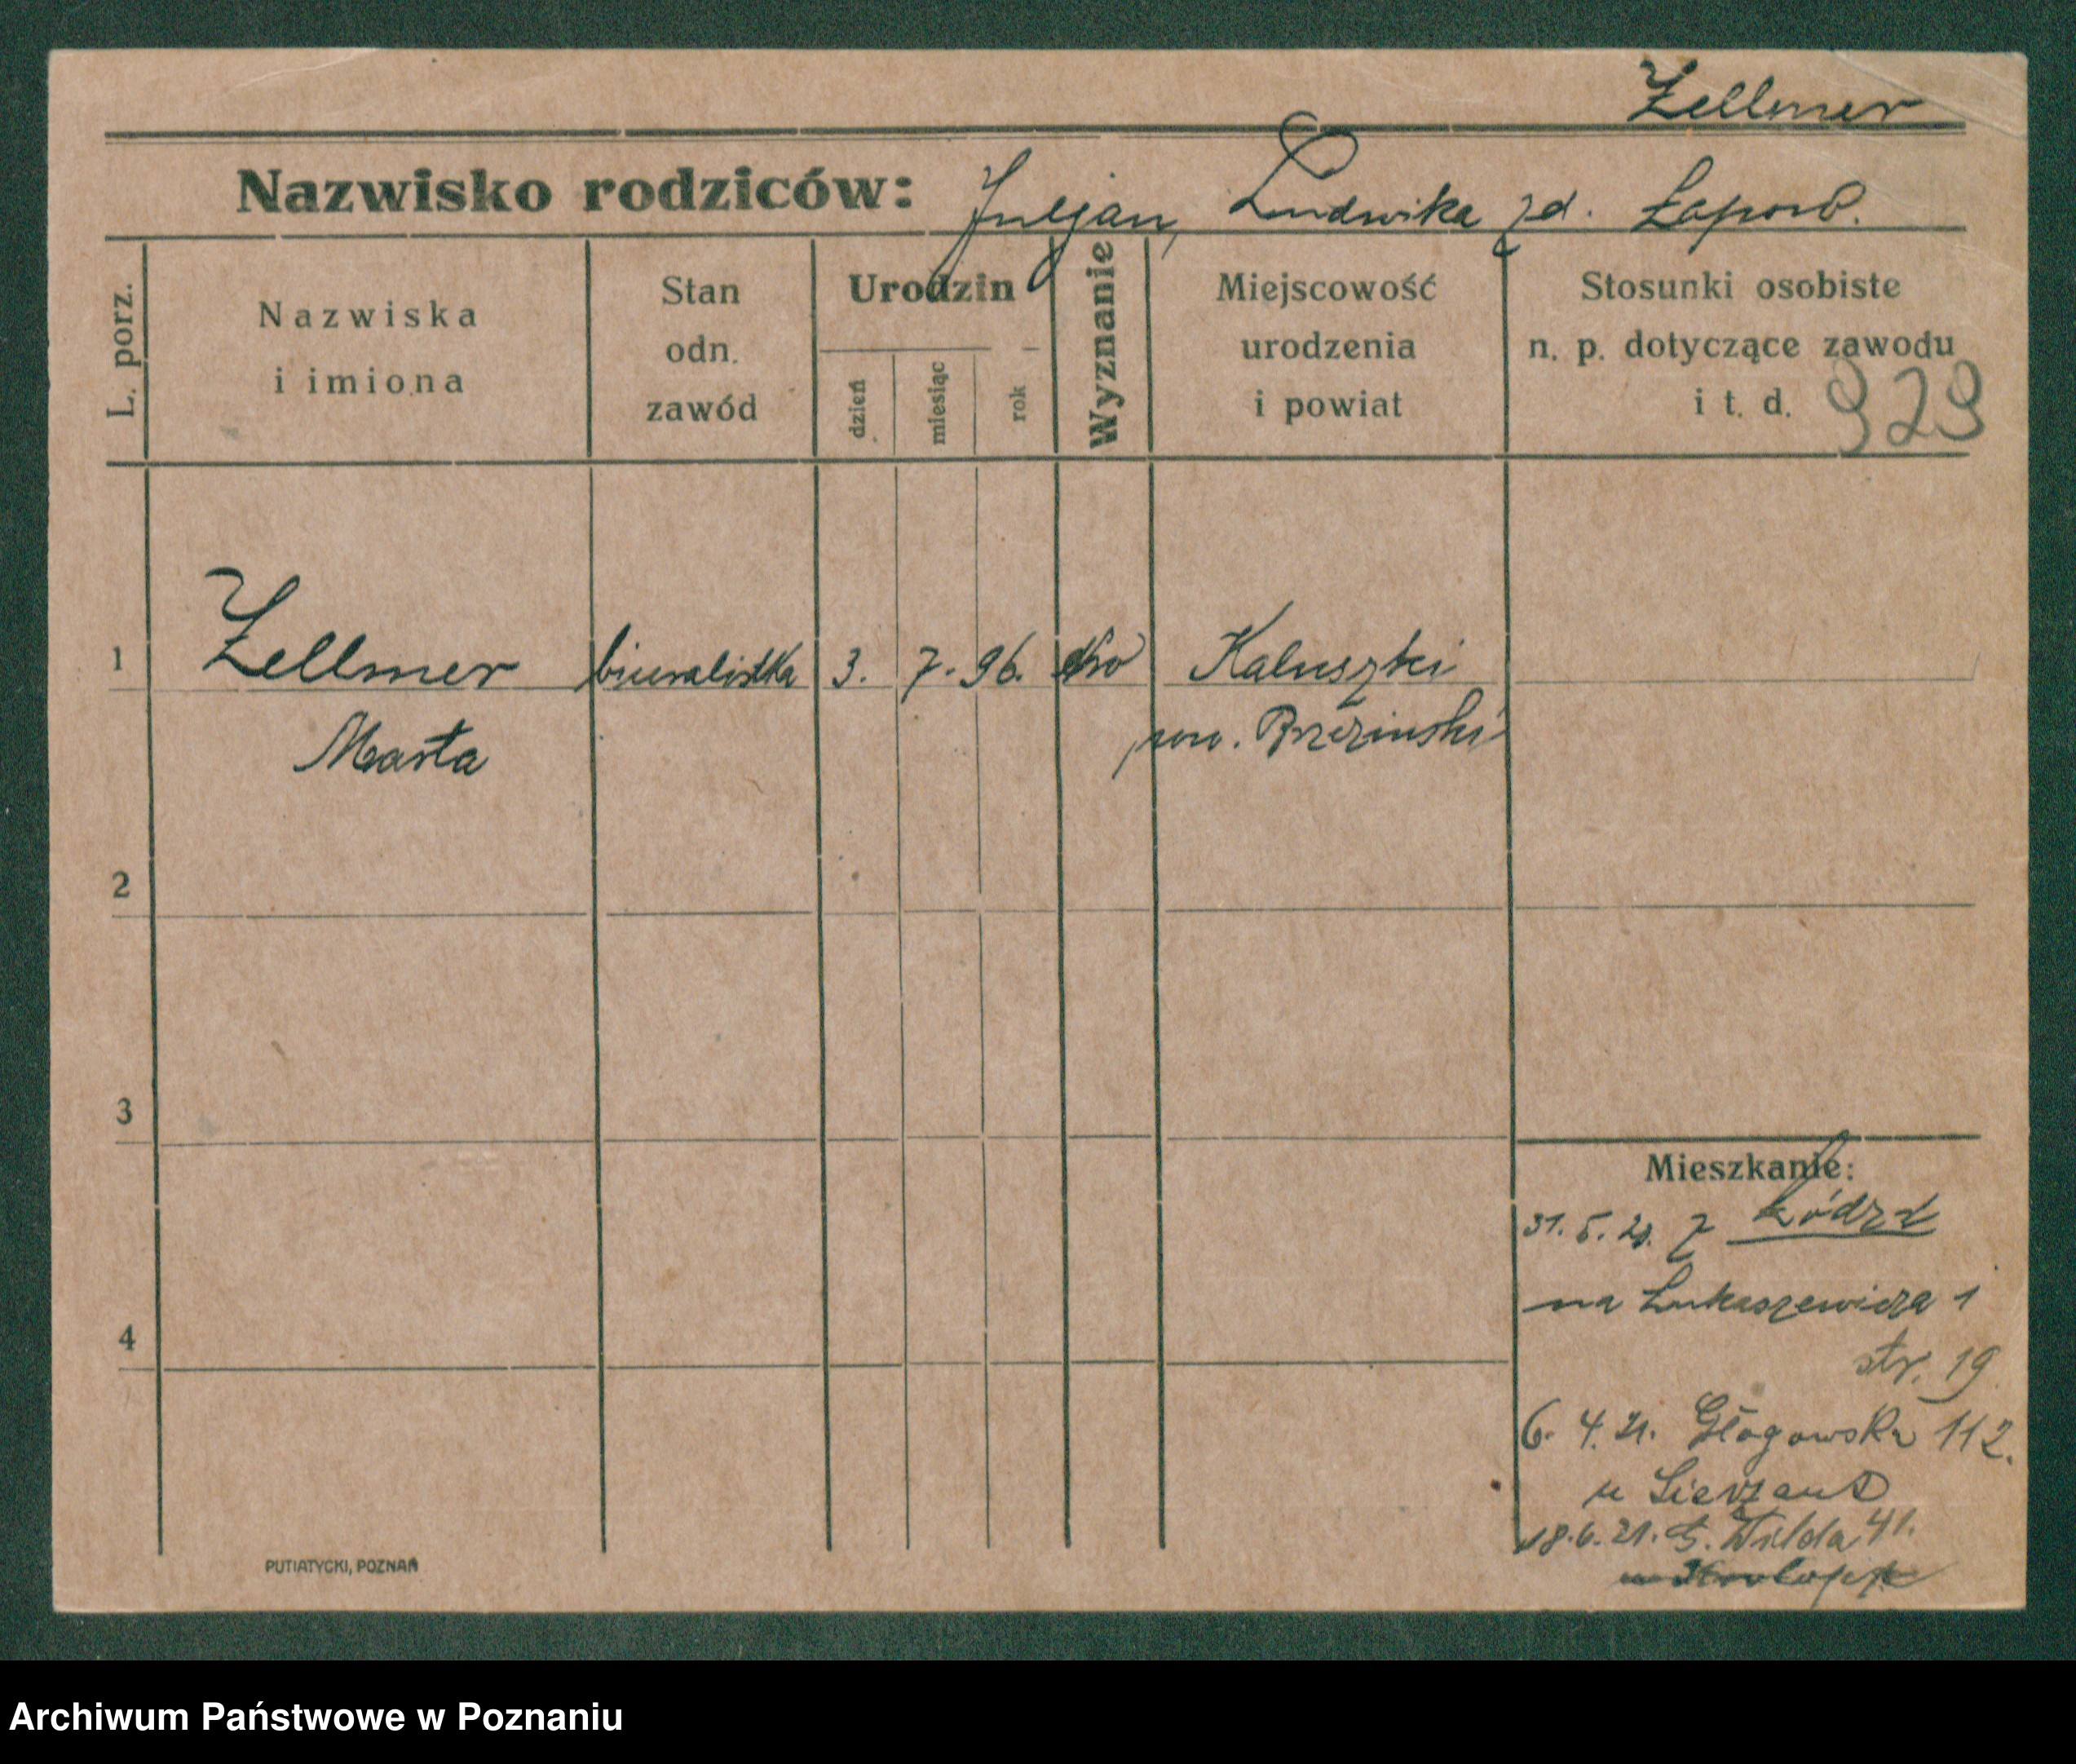 Zellmer
Nazwisko rodziców: Juljan, Ludwika zd. Łapow.
L. porz.
Nazwiska
i imiona
Stan
odn.
zawód
Urodzin
dzień
miesiąc
rok
Wyznanie
Miejscowość
urodzenia
i powiat
Stosunki osobiste
n. p. dotyczące zawodu
i t. d. 929
1 Zellmer biuralistka 3. 7. 96. Kaluszki
Marta pow. Brzezinski
2
3
4
Mieszkanie:
31. 5. 20. z Łódzi
na Łukaszewicza 1
str. 19
6. 4. 21. Głogowska 112.
u
18. 6. 21. G. Wilda 41.
PUTIATYCKI, POZNAŃ
Archiwum Państwowe w Poznaniu